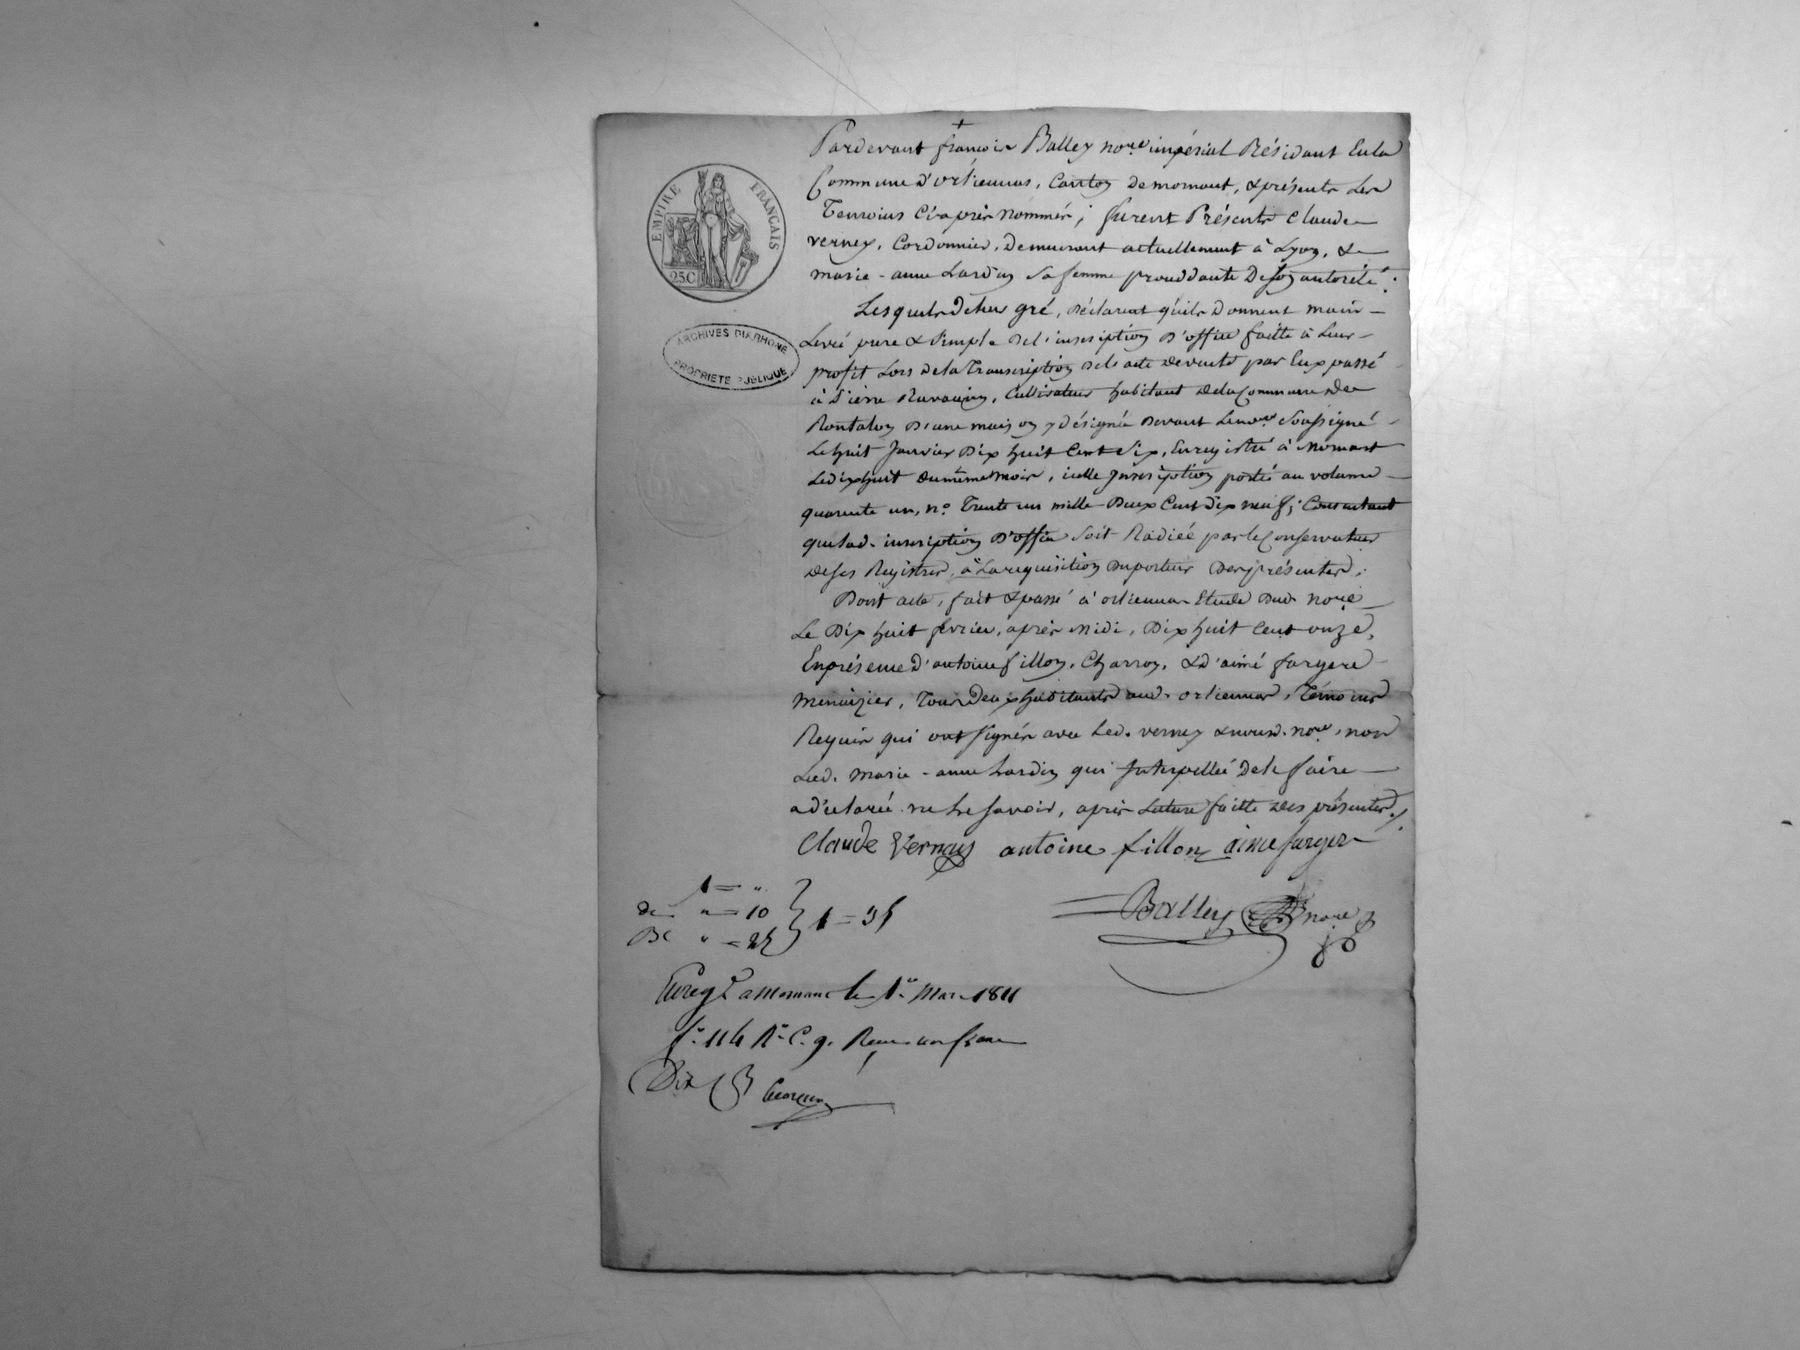 EMPIRE FRANÇAIS
25C
ARCHIVES DU RHONE
PROPRIETE PUBLIQUE
Pardevant françois Balley no.re impérial Résidant En la
Commune d'orliennas, Canton de mornant, & présents Les
Temoins Ci après nommés; furent Présents Claude
verney, Cordonnier, Demeurant actuellement à Lyon, &
marie-anne Lardin Sa femme procédante De son autorité:
Lesquels de leur gré, déclarent qu'ils donnent main-
Levée pure & Simple de l'inscription d'office faitte à Leur
profit Lors de la Transcription de l'acte de vente par Eux passé
à Pierre, Cultivateur habitant de la Commune de
Rontalon d'une maison y désignée devant Le no.re Soussigné
Le huit Janvier Dix huit Cent Six, Enregistré à Mornant
Le dix huit du même mois, icelle Inscription portée au volume
quarente un, n.o Trente un mille Deux Cent dix neuf; Consentant
que lad. inscription D'office Soit Radiée par le Conservateur
de ses Registres, à La requisition du porteur des présentes;
Dont acte, fait & passé à orliennas Etude dud. no.re
Le Dix huit fevrier, après Midi, Dix huit Cent onze,
En présence d'antoine fillon, Charron, & d'aimé fargere
Menuizier, Tous deux habitants aud. orliennas, Témoins
Requis qui ont signés avec Led. verney & nousd. no.re, non
Lad. marie-anne Lardin qui Interpellée de le faire
a déclarée ne Le Savoir, après Lecture faitte des présentes./.
Claude Vernay antoine fillon aimé fargere
Balley no.re
1 = "
de " = 10
" = 25
1 = 35
Enreg.é a Mornant le 1.er Mars 1811
f.o 114 R.o C. 9. Recu un franc
Dix C.